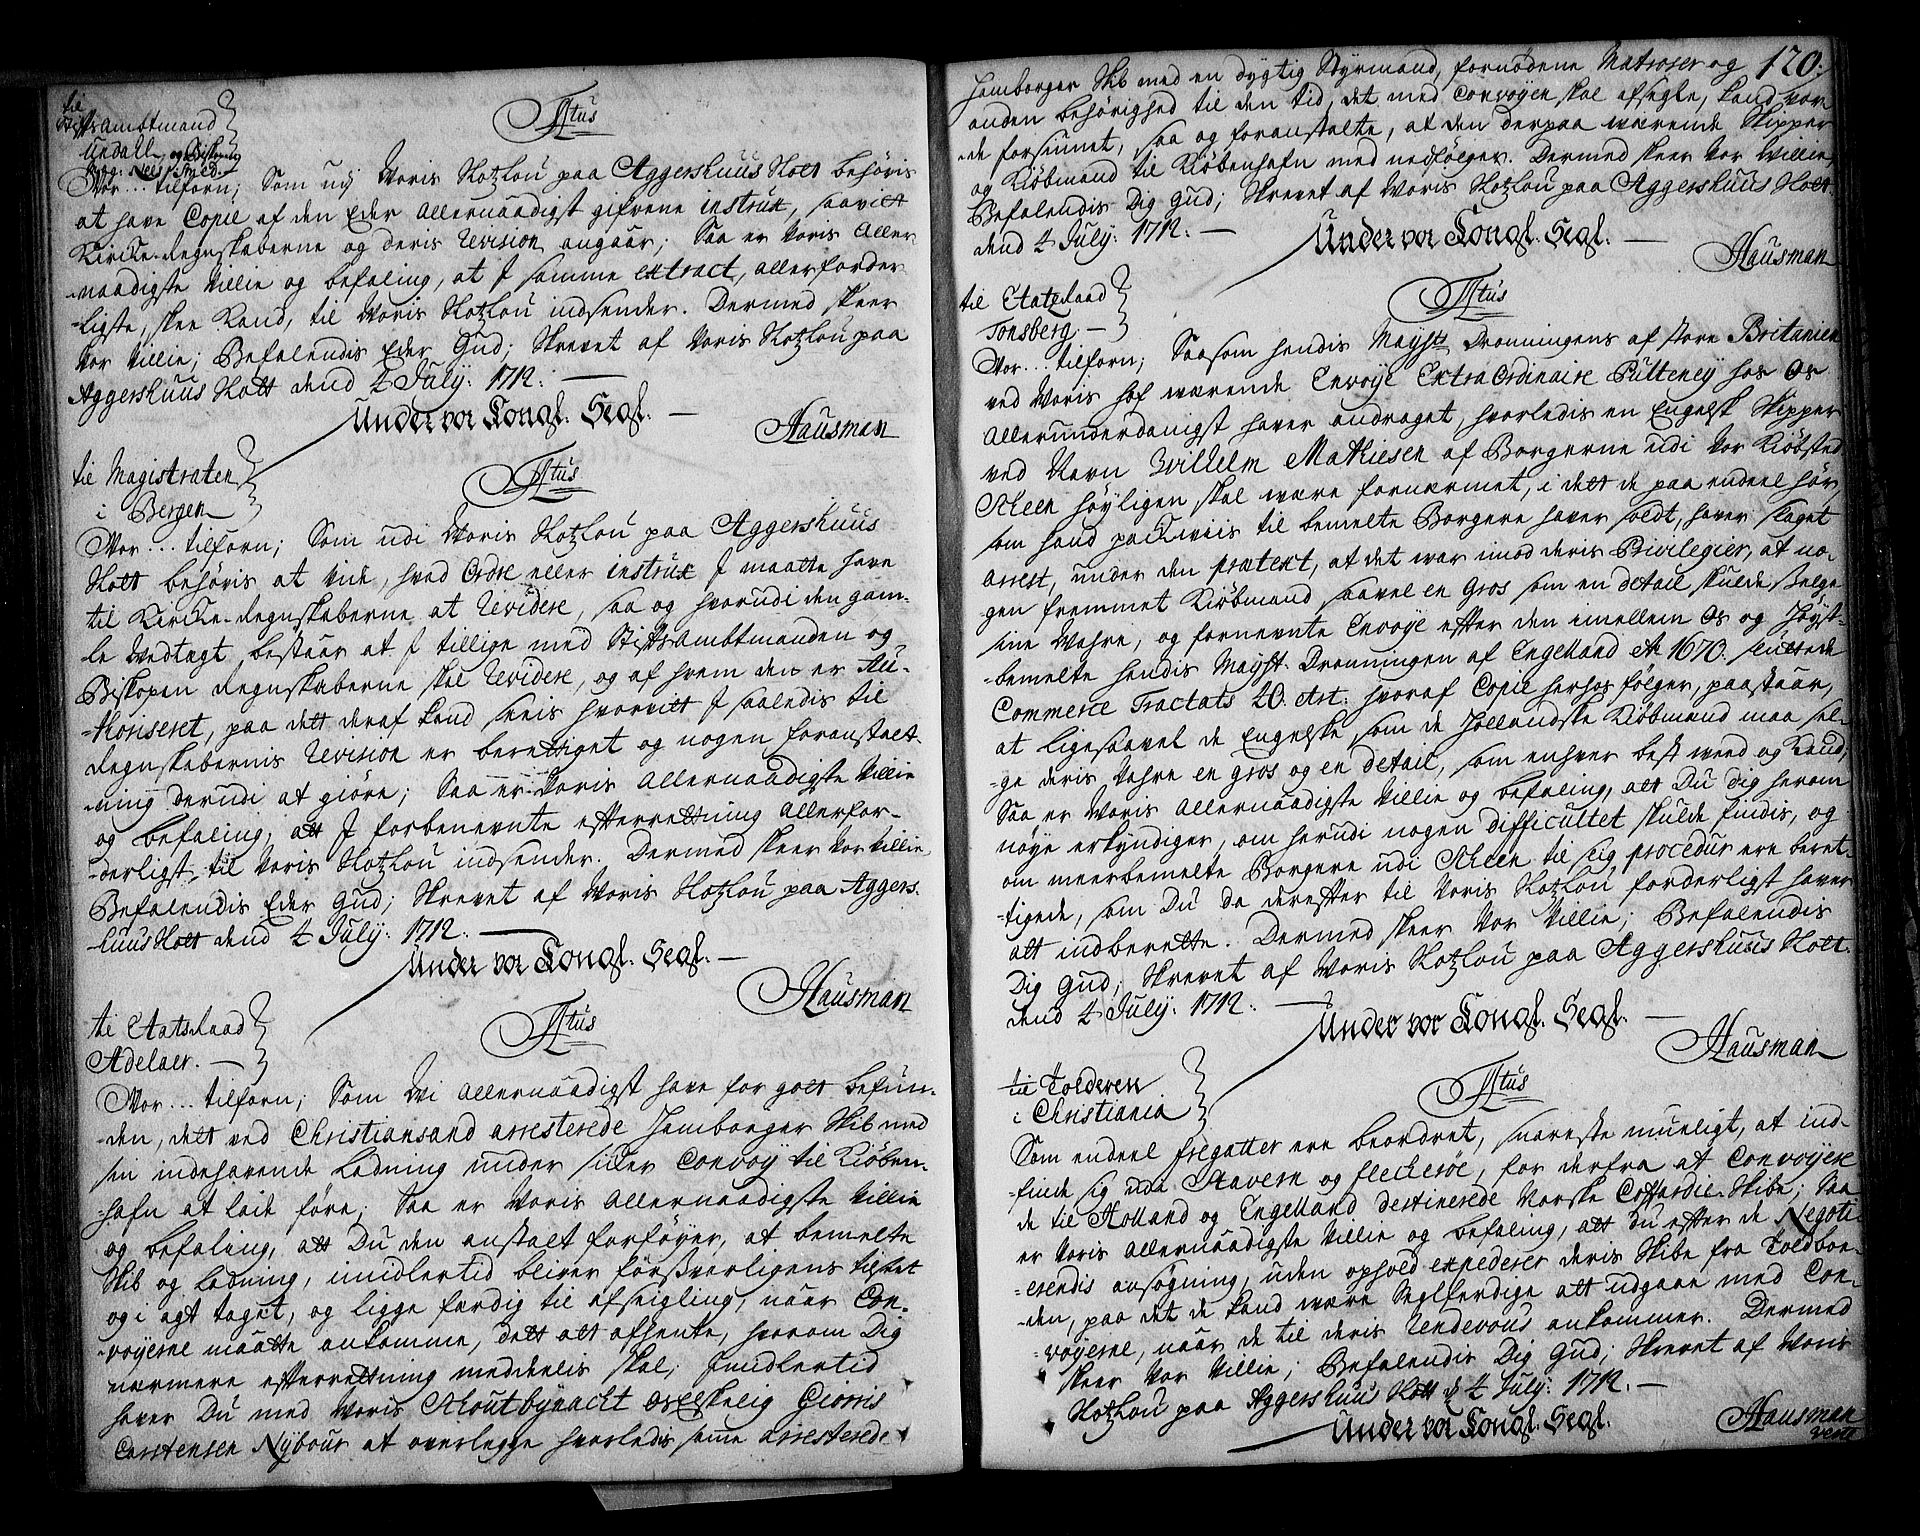 til
StiftsAmbtmand
Undall, og Biskop
Titus
Vor... tilforn; Som udj Voris Slotzlou paa Aggershuus Slott behøvis
at have Copie af den Eder allernaadigst gifvene instrux, saavitt
Kircke-Regnskaberne og deris Revision angaar; Saa er Voris Aller-
-naadigste Villie og befaling, at I samme extract, allerforder-
-ligste, skee kand, til Voris Slotzlou indsender. Dermed skeer
Vor Villie; Befalendis Eder Gud; Skrevet af Voris Slotzlou paa
Aggershuus Slott dend 2 July: 1712.
Under vor Kongl. Segl.
Hausman
til Magistraten
i Bergen
Titus
Vor... tilforn; Som udi Voris Slotzlou paa Aggershuus
Slott behøvis at vide, hvad Ordre eller instrux I maatte have
til Kircke-Regnskaberne at Revidere, saa og hvorudi den gam-
le Vedtegt bestaar at I tillige med StiftsAmbtmanden og
Biskopen Regnskaberne skal Revidere, og af hvem den er Au-
-thoriseret, paa dett deraf kand sees hvorvitt I saaledis til
Regnskabernis Revision er berettiget og nogen foranstalt-
-ning derudi at giøre; Saa er Voris Allernaadigste Villie
og befaling, att I forbenevnte efterrettning allerfor-
-derligst til Voris Slotzlou indsender. Dermed skeer Vor Villie,
Befalendis Eder Gud; Skrevet af Voris Slotzlou paa Aggers-
huus Slott dend 2 July: 1712.
Under vor Kongl. Segl.
Hausman
til Etatsraad
Adelaer.
Titus
Vor... tilforn; Som Wi allernaadigst have for gott befun-
-den, dett ved Christiansand arresterede Hamborger Skib med
sin indehavende Ladning under sicker Convoy til Kiøben-
-hafn at lade føre; Saa er Voris Allernaadigste Villie
og befaling, att Du den anstalt forføyer, at bemelte
Skib og Ladning, imidlertid bliver forsvarligens tilset
og i agt taget, og ligge færdig til afseigling, naar Con-
voyerne maatte ankomme, dett att afhente, hvorom Dig
nærmere efterrettning meddeelis skal; Imidlertid
haver Du med Voris Schoutbynacht Velb
Carstensen Nybour at overlegge hvorledis samme arresterede
120.
Hamborger Skib med en dygtig Styrmand, fornødene Matroser og
anden behørighed til den tid, det med Convoyen skal afsegle, kand vor-
-de forsiunet, saa og foranstalte, at den derpaa værende Skipper
og Kiøbmand til Kiøbenhafn med nedfølger. Dermed skeer Vor Villie,
Befalendis Dig Gud; Skrevet af Voris Slotzlou paa Aggershuus Slott
dend 2 July: 1712.
Under vor Kongl. Segl.
Hausman
til Etatsraad
Tonsberg.
Titus
Vor... tilforn; Saasom hendis Mayst: Dronningens af store Britanien
ved Voris hof værende Envoyé Extraordinaire Pulteney hos Os
allerunderdanigst haver andraget, hvorledis en Engelsk Skipper
ved Navn Wilhelm Mathiesen af Borgerne udi Vor Kiøbsted
Scheen høyligen skal være fornærmet, i dett de paa endeel hør
som hand packviis til bemelte Borgere haver soldt, haver slaget
arrest, under den prætext, at det var imod deris Privilegier, at no-
gen fremmet Kiøbmand saavel en Gros som en detail skulde Selge
sine Vahre, og fornevnte Envoyé efter den imellem Os og Høyst-
-bemelte hendis Mayst. Dronningen af Engelland Ao 1670. sluttede
Commerce Tractats 20. Art: hvoraf Copie herhos følger, paastaar,
at ligesaavel de Engelske som de Hollandske Kiøbmænd maa sel-
-ge deris Vahre en gros og en detail, som enhver best veed og kand;
Saa er Voris Allernaadigste Villie og befaling, att Du Dig herom
nøye erkyndiger, om herudi nogen difficultet skulde findis, og
om meerbemelte Borgere udi Scheen til slig procedur ere beret-
-tigede, som Du da derefter til Voris Slotzlou forderligst haver
att indberette. Dermed skeer Vor Villie; Befalendis
Dig Gud; Skrevet af Voris Slotzlou paa Aggershuus Slott.
dend 2 July: 1712.
Under vor Kongl. Segl.
Hausman
til Tolderen
i Christiania
Titus
Som endeel fregatter ere beordret, snareste mueligt, at ind-
-finde sig udi Stavern og fleckerøe, for derfra at Convoyere
de til Holland og Engelland destinerede Norske Coffardie Skibe; Saa
er Voris Allernaadigste Villie og befaling, att Du efter de Negoti-
erendis ansøgning, uden ophold expederer deris Skibe fra Toldboe-
-den, paa det de kand være Seglferdige att udgaae med Con-
-voyerne, naar de til deris Rendevous ankommer. Dermed
skeer Vor Villie; Befalendis Dig Gud; Skrevet af Voris
Slotzlou paa Aggershuus Slott d. 2 July: 1712.
Under vor Kongl. Segl.
Hausman